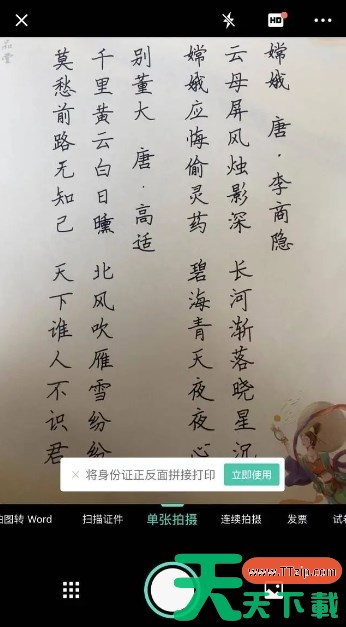 HD
嫦娥 唐·李商隐
云母屏风烛影深 长河渐落晓星沉
嫦娥应悔偷灵药 碧海青天夜夜心
别董大 唐·高适
千里黄云白日曛 北风吹雁雪纷纷
莫愁前路无知己 天下谁人不识君
将身份证正反面拼接打印
立即使用
拍图转 Word
扫描证件
单张拍摄
连续拍摄
发票
试卷
www.TTzip.com
天天下載